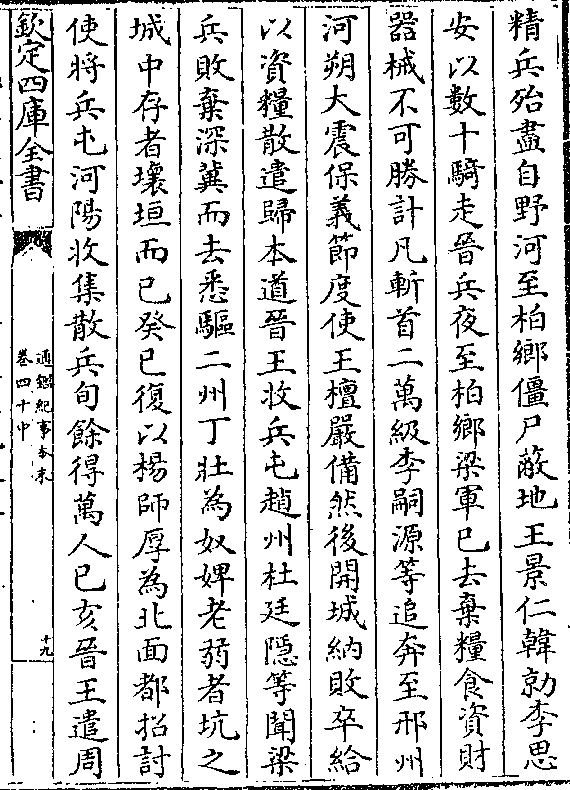 精兵殆盡自野河至柏鄉僵尸蔽地王景仁韓勍李思
安以數十騎走晉兵夜至柏鄉梁軍已去棄糧食資財
器械不可勝計凡斬首二萬級李嗣源等追奔至邢州
河朔大震保義節度使王檀嚴備然後開城納敗卒給
以資糧散遣歸本道晉王收兵屯趙州杜廷隱等聞梁
兵敗棄深冀而去悉驅二州丁壯為奴婢老弱者坑之
城中存者壞垣而已癸巳復以楊師厚為北面都招討
使將兵屯河陽收集散兵旬餘得萬人己亥晉王遣周
欽定四庫全書
通鑑紀事本末
卷四十中
十九